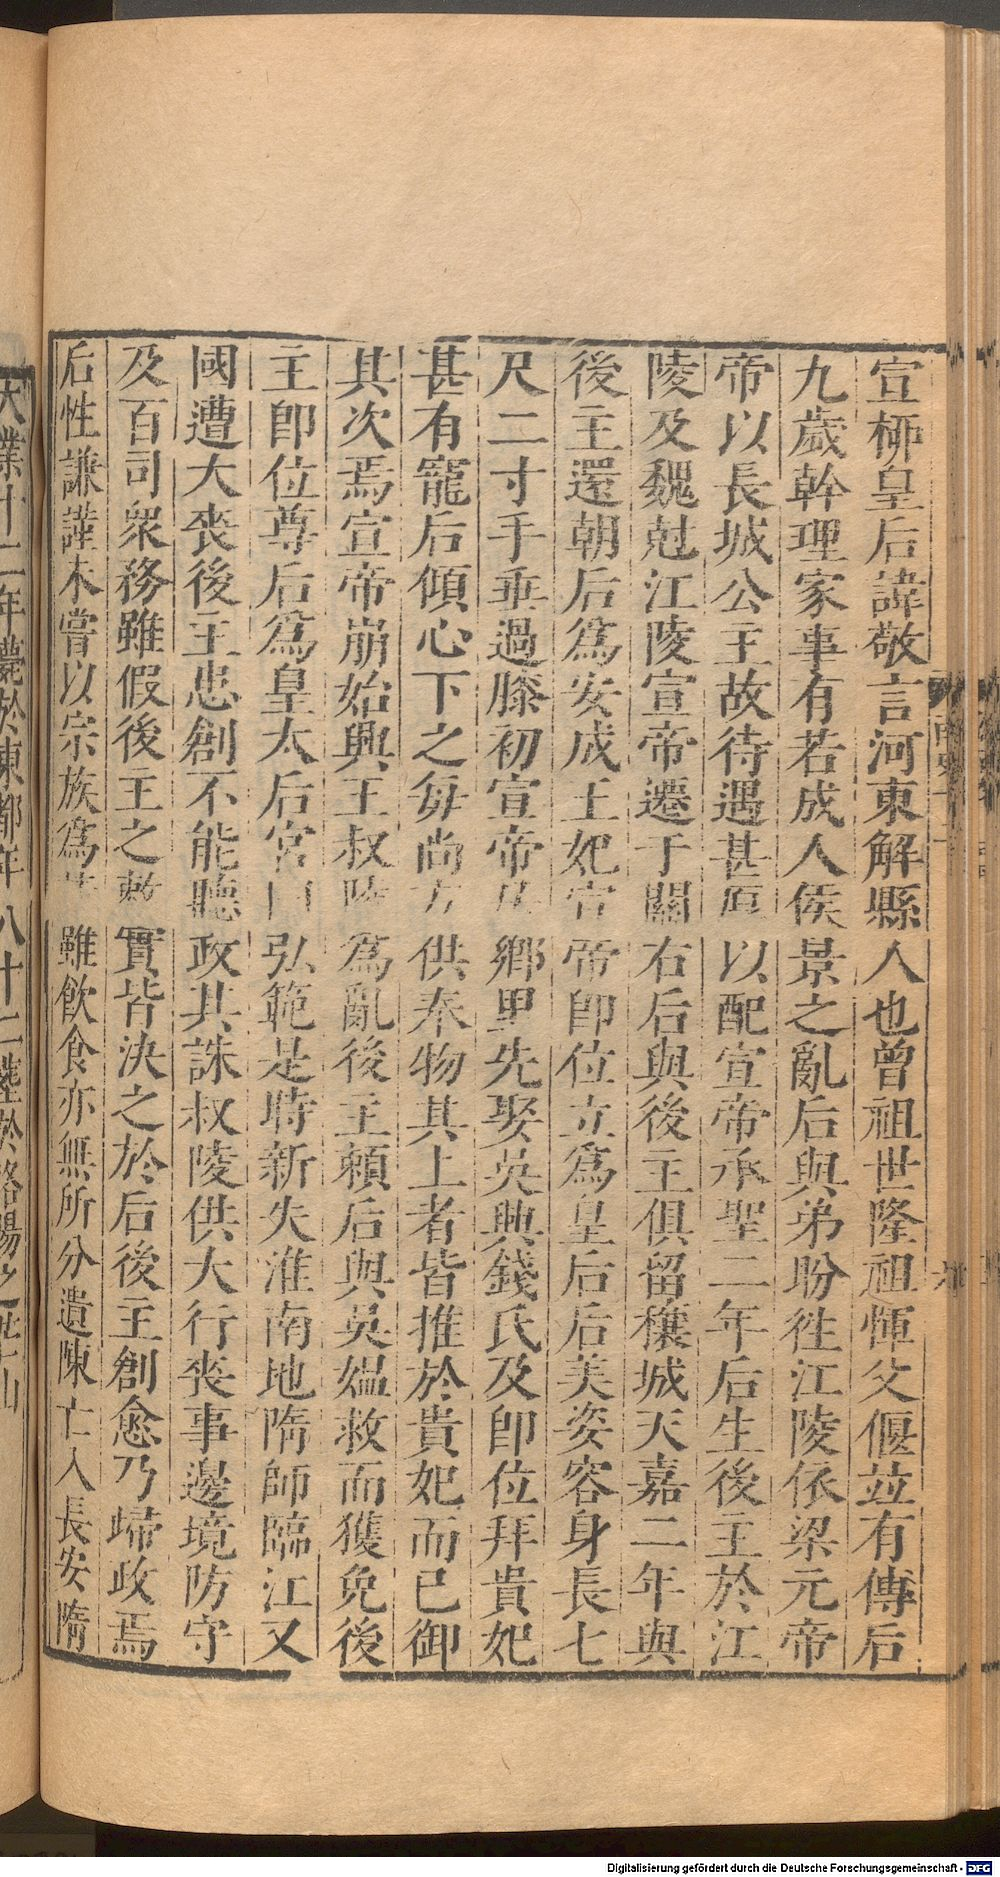 宣柳皇后諱敬言河東解縣人也曾祖世隆祖惲父偃竝有傳后
九歲幹理家事有若成人侯景之亂后與弟盼徃江陵依梁元帝
帝以長城公主故待遇甚厚以配宣帝承聖二年后生後主於江
陵及魏尅江陵宣帝遷于關右后與後主俱留穰城天嘉二年與
後主還朝后爲安成王妃宣帝即位立爲皇后后美姿容身長七
尺二寸手垂過膝初宣帝居鄉里先娶吳興錢氏及即位拜貴妃
甚有寵后傾心下之每尚方供奉物其上者皆推於貴妃而已御
其次焉宣帝崩始興王叔陵爲亂後主賴后與吳媪救而獲免後
主即位尊后爲皇太后宮曰弘範是時新失淮南地隋師臨江又
國遭大喪後主患創不能聽政其誅叔陵供大行喪事邊境防守
及百司衆務雖假後主之敕實皆決之於后後主創愈乃歸政焉
后性謙謹未嘗以宗族爲雖飲食亦無所分遺陳亡入長安隋
大業十二年薨於東都年八十二葬於洛陽之邙山
Digitalisierung gefördert durch die Deutsche Forschungsgemeinschaft - DFG